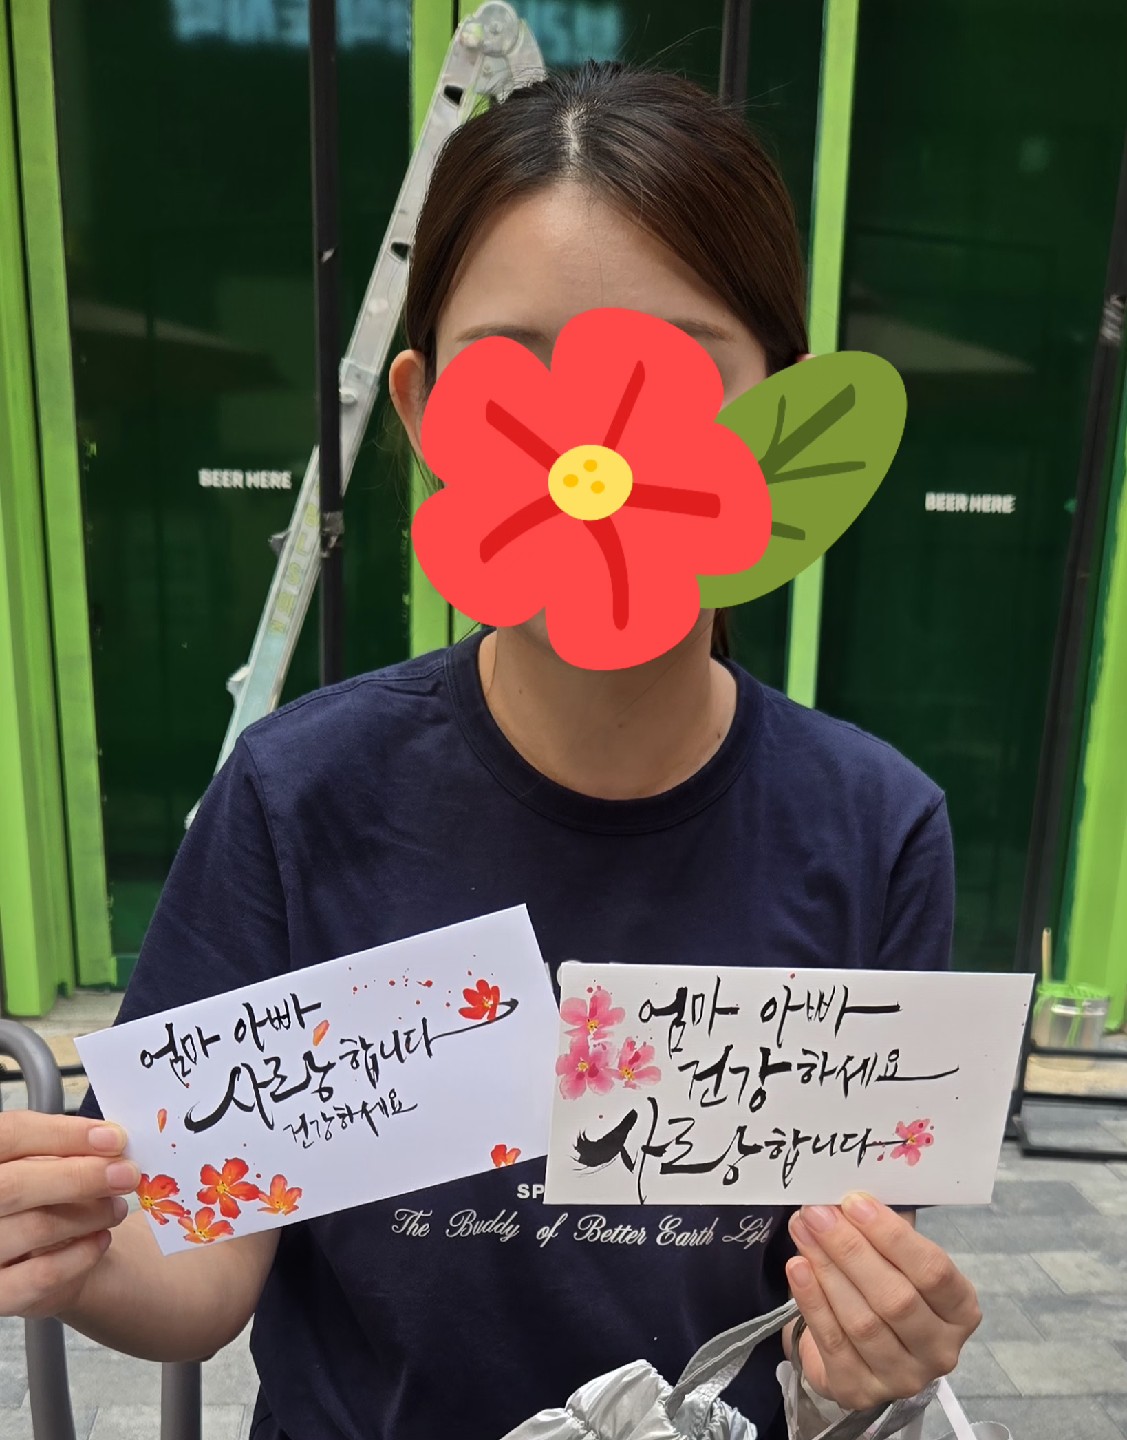 BEER HERE
BEER HERE
엄마 아빠
사랑합니다
건강하세요
엄마 아빠
건강하세요
사랑합니다
SP
The Buddy of Better Earth Life